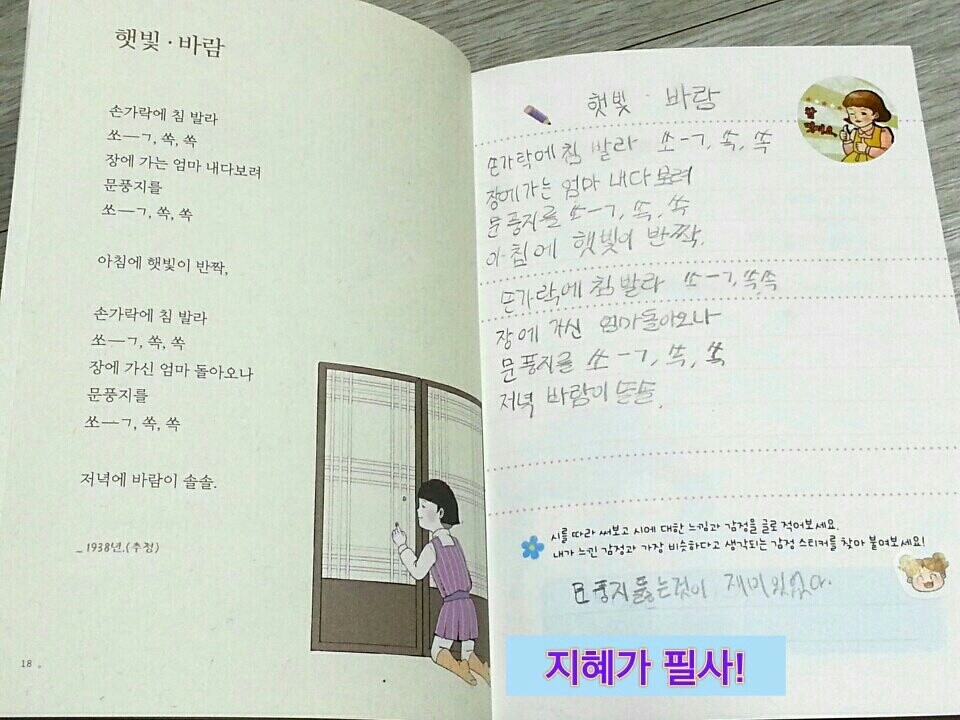 햇빛 · 바람
손가락에 침 발라
쏘—ㄱ, 쏙, 쏙
장에 가는 엄마 내다보려
문풍지를
쏘—ㄱ, 쏙, 쏙
아침에 햇빛이 반짝,
손가락에 침 발라
쏘—ㄱ, 쏙, 쏙
장에 가신 엄마 돌아오나
문풍지를
쏘—ㄱ, 쏙, 쏙
저녁에 바람이 솔솔.
_ 1938년.(추정)
18
햇빛 · 바람
손가락에 침 발라 쏘-ㄱ, 쏙, 쏙
장에 가는 엄마 내다 보려
문풍지를 쏘-ㄱ, 쏙, 쏙
아침에 햇빛이 반짝,
손가락에 침 발라 쏘-ㄱ, 쏙, 쏙
장에 가신 엄마돌아오나
문풍지를 쏘-ㄱ, 쏙, 쏙
저녁 바람이 솔솔.
시를 따라 써보고 시에 대한 느낌과 감정을 글로 적어보세요.
내가 느낀 감정과 가장 비슷하다고 생각되는 감정 스티커를 찾아 붙여보세요!
문풍지 뚫는것이 재미있었다.
지혜가 필사!